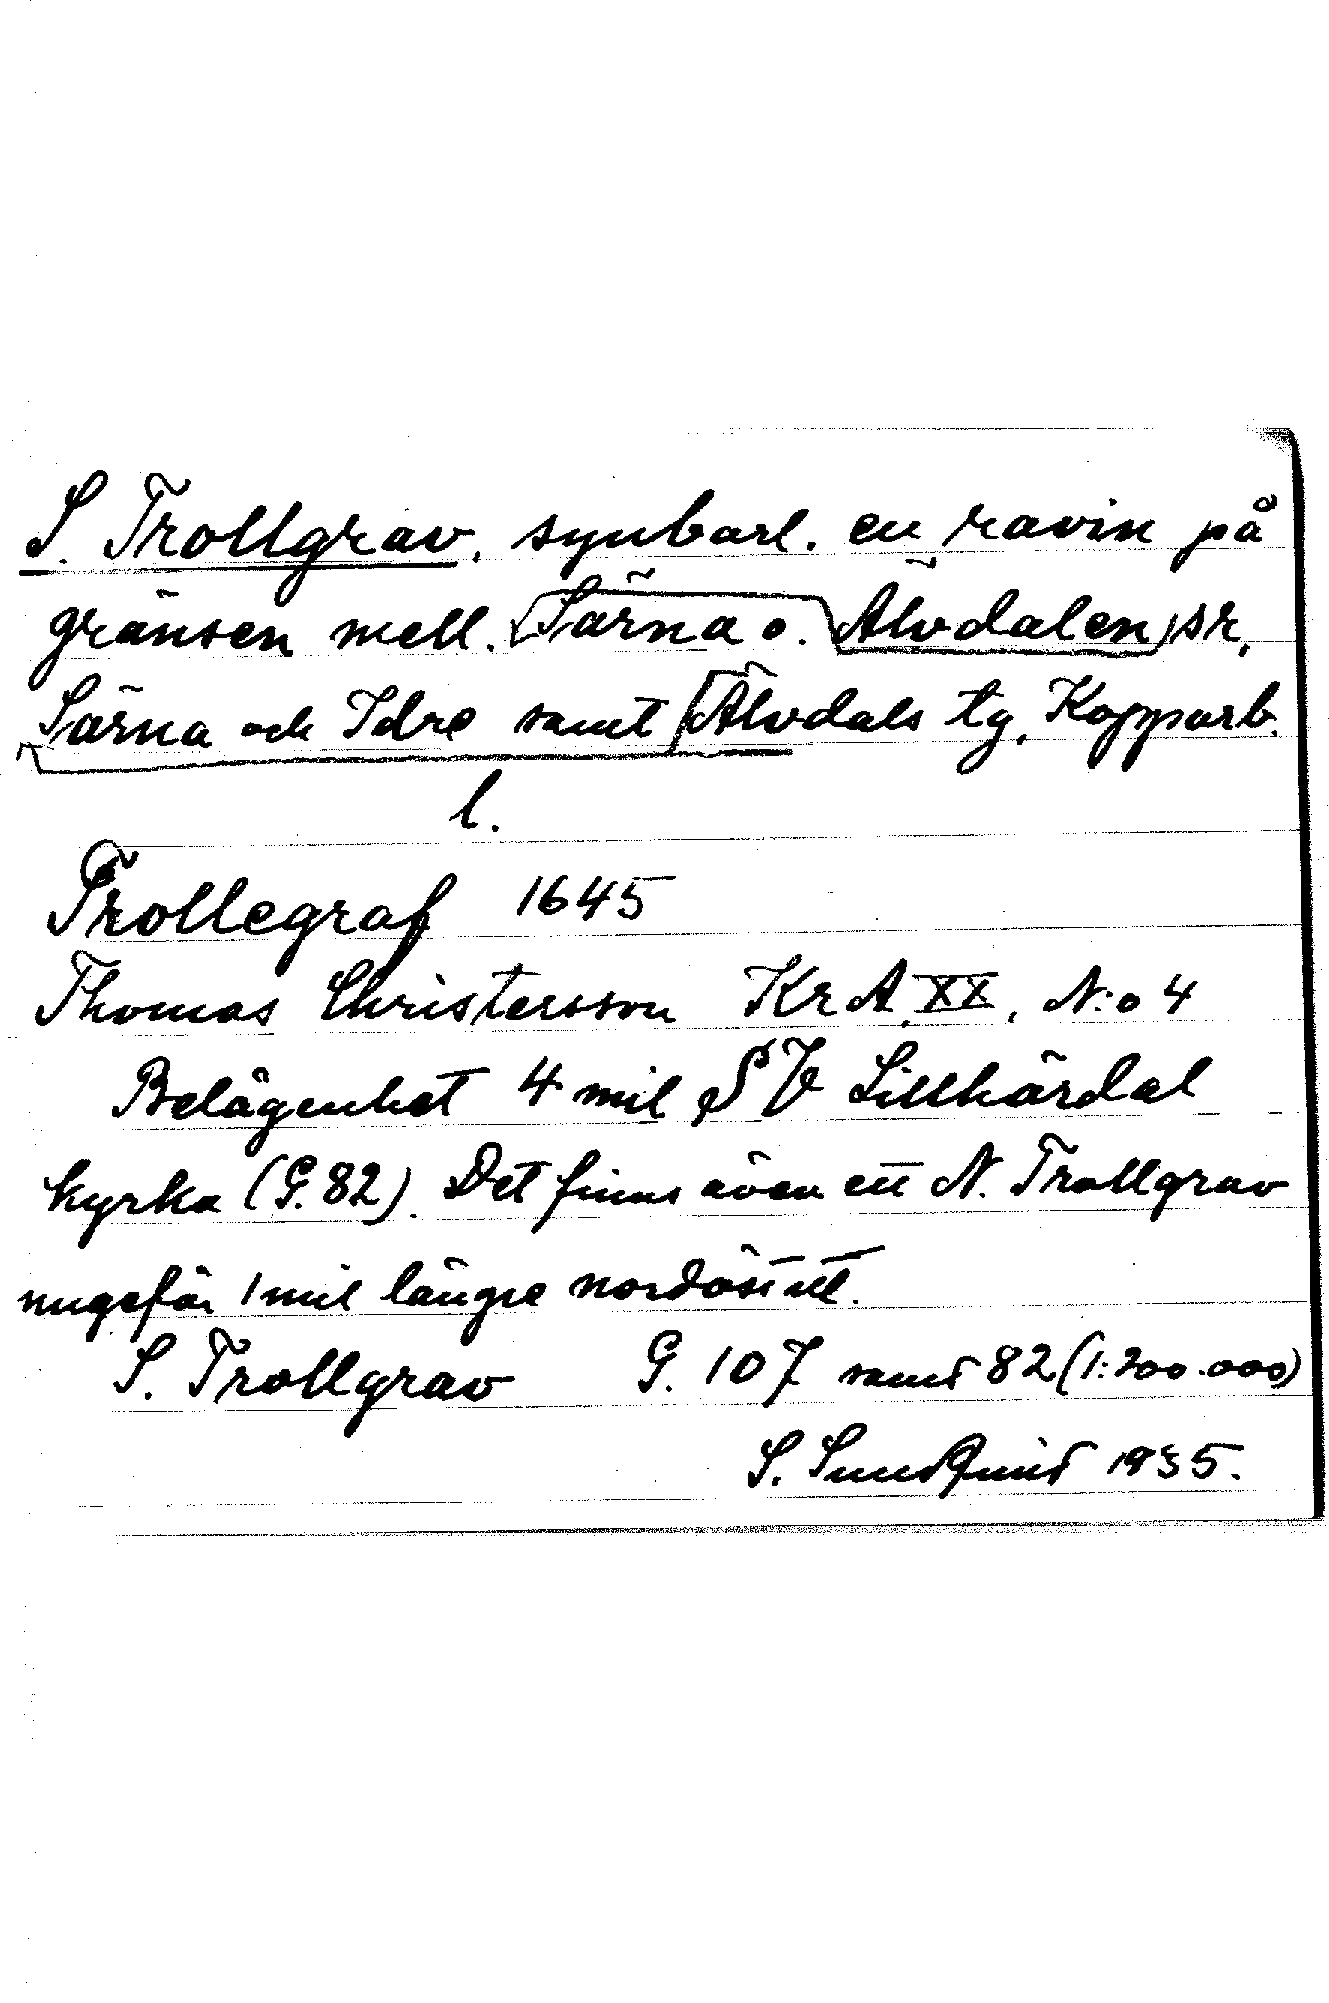 S. Trollgrav, synbarl. en ravin på
gränsen mell. Särna o. Älvdalen sr,
Särna och Idre samt Älvdals tg, Kopparb.
l.
Trollegraf 1645
Thomas Christersson KrA XX, N:o 4
Belägenhet 4 mil SV Lillhärdal
kyrka (G. 82). Det finns även ett N. Trollgrav
ungefär 1 mil längre nordöst ut.
S. Trollgrav G. 107 samt 82 (1:200.000)
S. Sundquist 1935.